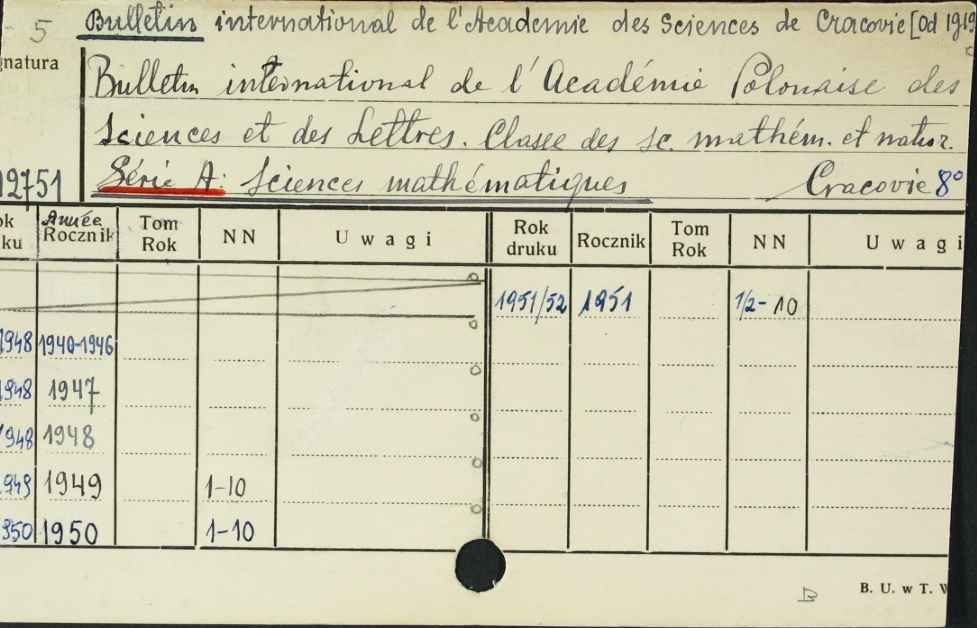 5 Bulletin international de l'Academie des Sciences de Cracovie [Od 1919
natura
Bulletin international de l'Académie Polonaise des
Sciences et des Lettres. Classe des Sc. mathém. et natur.
12751 Série A: Sciences mathématiques Cracovie 8°
ok ku Année Rocznik Tom Rok NN Uwagi Rok druku Rocznik Tom Rok NN Uwagi
1951/52 1951 1/2-10
1948 1940-1946
1948 1947
1948 1948
1949 1949 1-10
950 1950 1-10
B B. U. w T. W